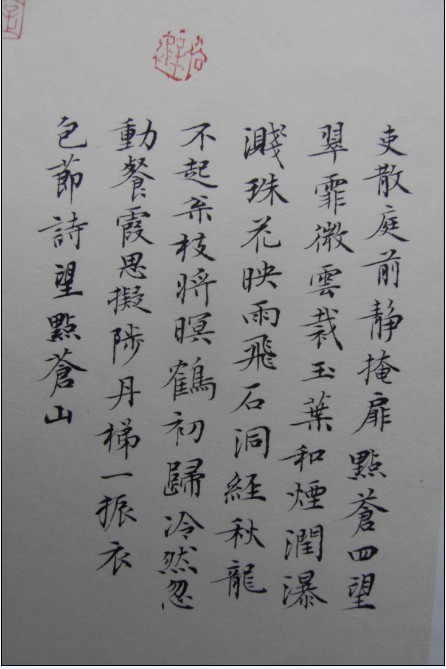 吏散庭前靜掩扉點蒼四望
翠霏微雲裁玉葉和煙潤瀑
濺珠花映雨飛石洞經秋龍
不起枀枝將暝鶴初歸冷然忽
動餐霞思擬陟丹梯一振衣
包莭詩望點蒼山